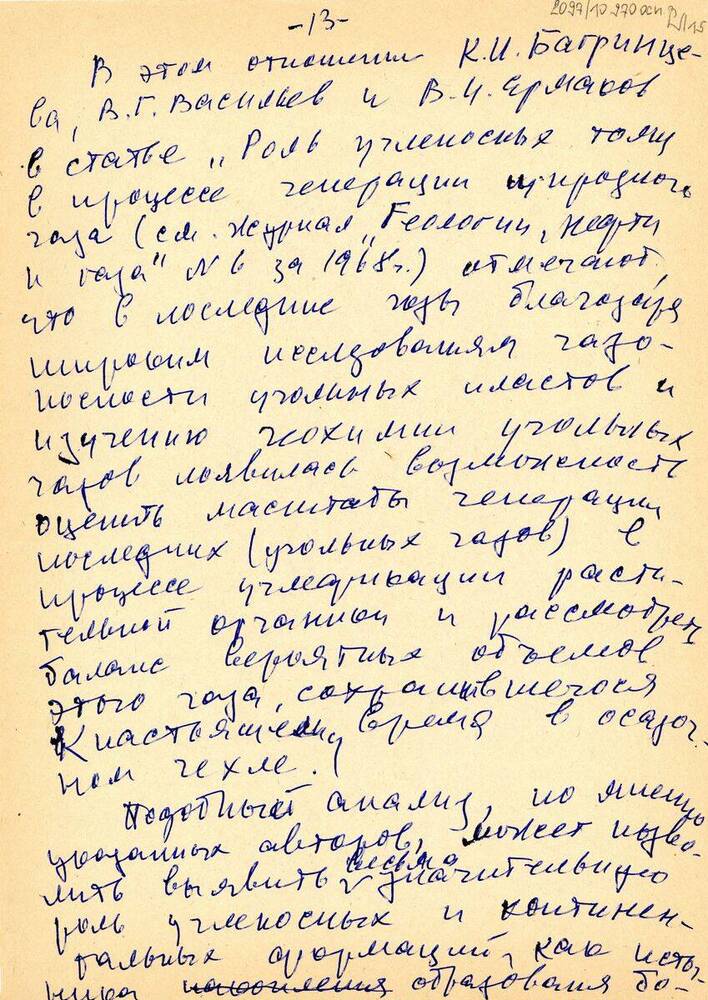 2097/10 270 осп. Р/Л 15
-13-
В этом отношении К.И. Багринце-
ва, В.Г. Васильев и В.И. Ермаков
в статье „Роль угленосных толщ
в процессе генерации природного
газа (см. журнал „Геология, нефти
и газа" № 6 за 1968г.) отмечают,
что в последние годы благодаря
широким исследованиям газо-
носности угольных пластов и
изучению геохимии угольных
газов появилась возможность
оценить масштабы генерации
последних (угольных газов) в
процессе углефикации расти-
тельной органики и рассмотреть
баланс вероятных объемов
этого газа, сохранившегося
к настоящему время в осадоч-
ном чехле.
Подобный анализ, по мнению
указанных авторов, может позво-
лить выявить весьма значительную
роль угленосных и континен-
тальных формаций, как исто-
чника накопления образования бо-